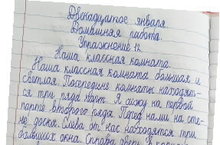 Двенадцатое января
Домашняя работа.
Упражнение 12.
Наша классная комната.
Наша классная комната большая и
светлая. Посередине комнаты находят-
ся три ряда парт. Я сижу на первой
парте второго ряда. Перед нами на сте-
не доска. Слева от нас находятся три
больших окна. Справа